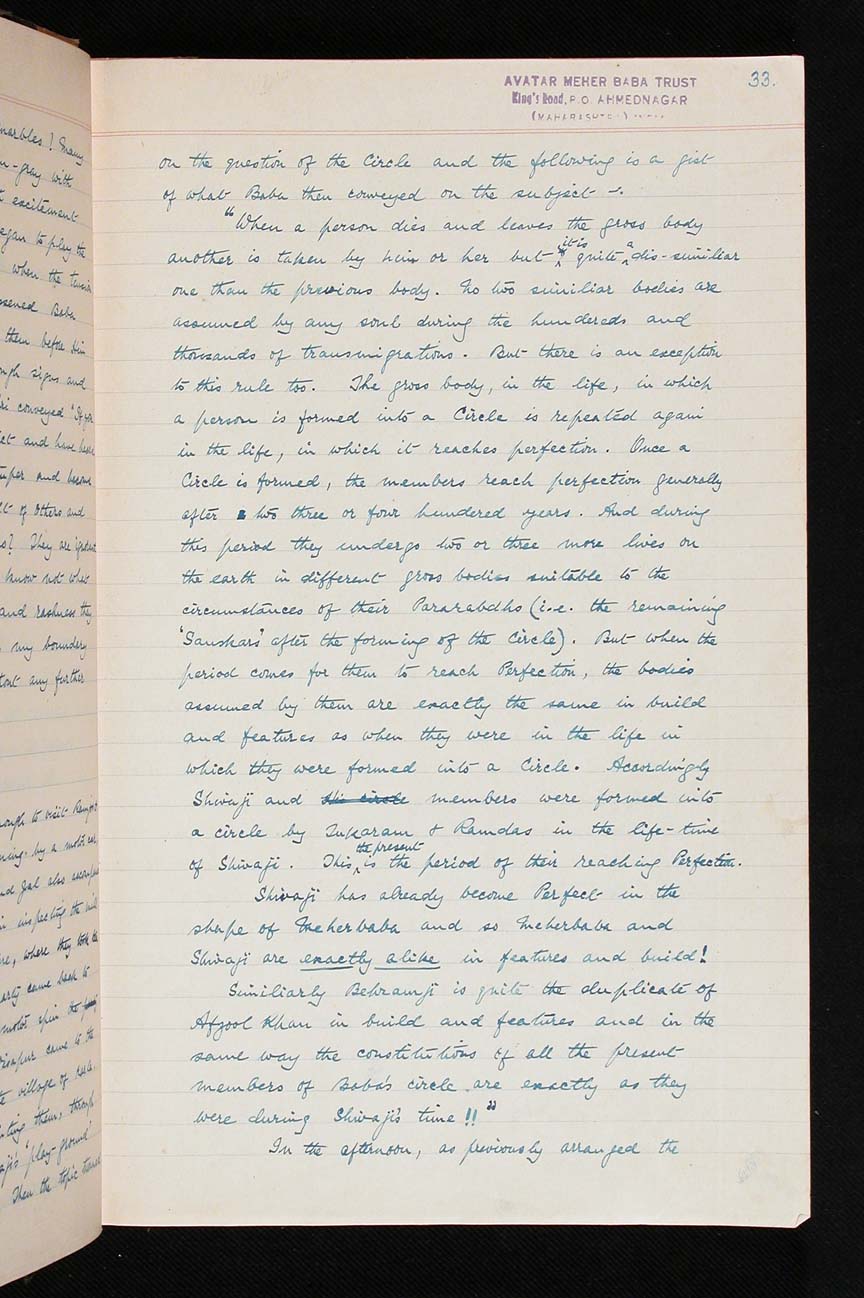 AVATAR MEHER BABA TRUST
King's Road, P.O. AHMEDNAGAR
33.
on the question of the Circle and the following is a gist
of what Baba then conveyed on the subject -.
"When a person dies and leaves the gross body
another is taken by him or her but it is quite a dis-similiar
one than the previous body. No two similiar bodies are
assumed by any soul during the hundereds and
thousands of transmigrations. But there is an exception
to this rule too. The gross body, in the life, in which
a person is formed into a Circle is repeated again
in the life, in which it reaches perfection. Once a
Circle is formed, the members reach perfection generally
after two three or four hundered years. And during
this period they undergo two or three more lives on
the earth in different gross bodies suitable to the
circumstances of their Pararabdhs (i.e. the remaining
'Sanskars' after the forming of the Circle). But when the
period comes for them to reach Perfection, the bodies
assumed by them are exactly the same in build
and features as when they were in the life in
which they were formed into a Circle. Accordingly
Shivaji and the circle members were formed into
a circle by Tukaram & Ramdas in the life-time
of Shivaji. This the present is the period of their reaching Perfection.
Shivaji has already become Perfect in the
shape of Meherbaba and so Meherbaba and
Shivaji are exactly alike in features and build!
Similiarly Behramji is quite the duplicate of
Afzool Khan in build and features and in the
same way the constitutions of all the present
members of Baba's circle are exactly as they
were during Shivaji's time!!"
In the afternoon, as previously arranged the